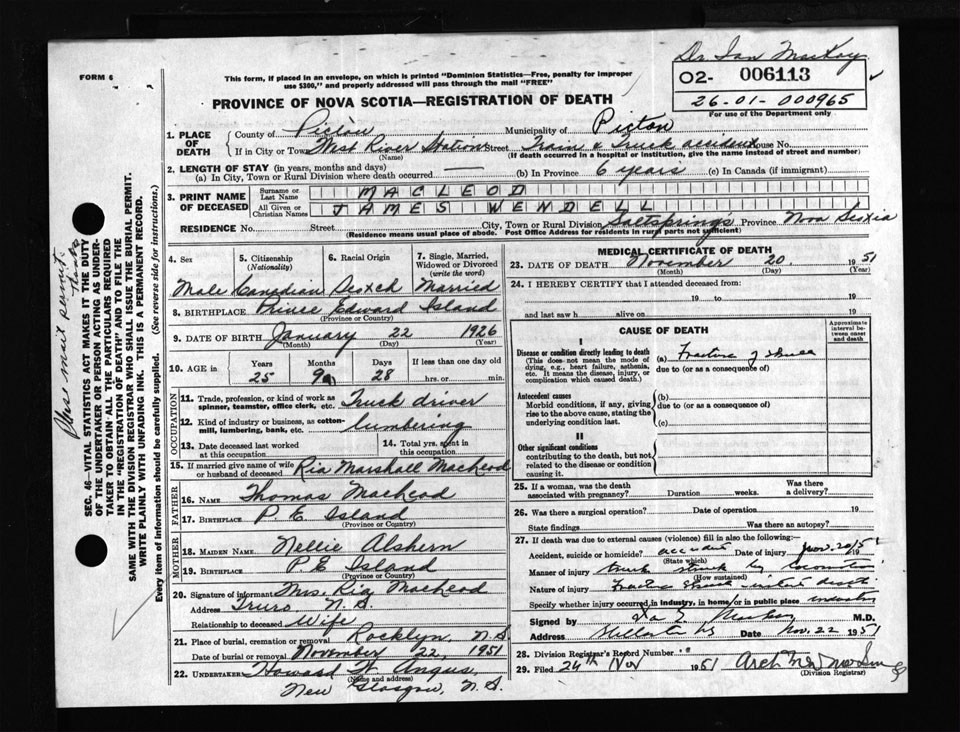 Dr. Ian MacKay
FORM 6
This form, if placed in an envelope, on which is printed "Dominion Statistics—Free, penalty for improper
use $300," and properly addressed will pass through the mail "FREE"
O2- 006113
26-01-000965
For use of the Department only
PROVINCE OF NOVA SCOTIA—REGISTRATION OF DEATH
1. PLACE OF DEATH
County of Pictou Municipality of Pictou
If in City or Town West River Station Street Train & Truck accident House No.
(Name) (If death occurred in a hospital or institution, give the name instead of street and number)
2. LENGTH OF STAY (in years, months and days)
(a) In City, Town or Rural Division where death occurred — (b) In Province 6 years (c) In Canada (if immigrant)
3. PRINT NAME OF DECEASED
Surname or Last Name MACLEOD
All Given or Christian Names JAMES WENDELL
RESIDENCE No. Street City, Town or Rural Division Saltsprings Province Nova Scotia
(Residence means usual place of abode. Post Office Address for residents in rural parts not sufficient)
4. Sex 5. Citizenship (Nationality) 6. Racial Origin 7. Single, Married, Widowed or Divorced (write the word)
Male Canadian Scotch Married
8. BIRTHPLACE Prince Edward Island
(Province or Country)
9. DATE OF BIRTH January 22 1926
(Month) (Day) (Year)
10. AGE in Years Months Days If less than one day old
25 9 28 hrs. or min.
OCCUPATION
11. Trade, profession, or kind of work as spinner, teamster, office clerk, etc. Truck driver
12. Kind of industry or business, as cotton-mill, lumbering, bank, etc. lumbering
13. Date deceased last worked at this occupation 14. Total yrs. spent in this occupation
15. If married give name of wife or husband of deceased Ria Marshall MacLeod
FATHER
16. NAME Thomas MacLeod
17. BIRTHPLACE P. E. Island
(Province or Country)
MOTHER
18. MAIDEN NAME Nellie
19. BIRTHPLACE P. E. Island
(Province or Country)
20. Signature of informant Mrs. Ria MacLeod
Address Truro, N. S.
Relationship to deceased Wife
21. Place of burial, cremation or removal Rocklyn, N. S.
Date of burial or removal November 22, 1951
22. UNDERTAKER Howard W. Angus,
(Name and address)
New Glasgow, N. S.
MEDICAL CERTIFICATE OF DEATH
23. DATE OF DEATH November 20 1951
(Month) (Day) (Year)
24. I HEREBY CERTIFY that I attended deceased from:
19 to 19
and last saw h alive on 19
CAUSE OF DEATH
Approximate interval between onset and death
I
Disease or condition directly leading to death (a) Fracture of skull
(This does not mean the mode of dying, e.g., heart failure, asthenia, etc. It means the disease, injury, or complication which caused death.)
due to (or as a consequence of)
Antecedent causes
Morbid conditions, if any, giving rise to the above cause, stating the underlying condition last.
(b)
due to (or as a consequence of)
(c)
II
Other significant conditions
contributing to the death, but not related to the disease or condition causing it.
25. If a woman, was the death associated with pregnancy? Duration weeks. Was there a delivery?
26. Was there a surgical operation? Date of operation 19
State findings Was there an autopsy?
27. If death was due to external causes (violence) fill in also the following:—
Accident, suicide or homicide? accident Date of injury Nov. 20/51 19
(State which)
Manner of injury truck struck by locomotive
(How sustained)
Nature of injury Fracture Skull instant death
Specify whether injury occurred in industry, in home/or in public place industry
Signed by Ian MacKay M.D.
Address Date Nov. 22 1951
28. Division Registrar's Record Number
29. Filed 24th Nov 1951
(Division Registrar)
SEC. 46—VITAL STATISTICS ACT MAKES IT THE DUTY
OF THE UNDERTAKER OR PERSON ACTING AS UNDER-
TAKER TO OBTAIN ALL THE PARTICULARS REQUIRED
IN THE "REGISTRATION OF DEATH" AND TO FILE THE
SAME WITH THE DIVISION REGISTRAR WHO SHALL ISSUE THE BURIAL PERMIT.
WRITE PLAINLY WITH UNFADING INK. THIS IS A PERMANENT RECORD.
Every item of information should be carefully supplied. (See reverse side for instructions.)
permit.
Thanks